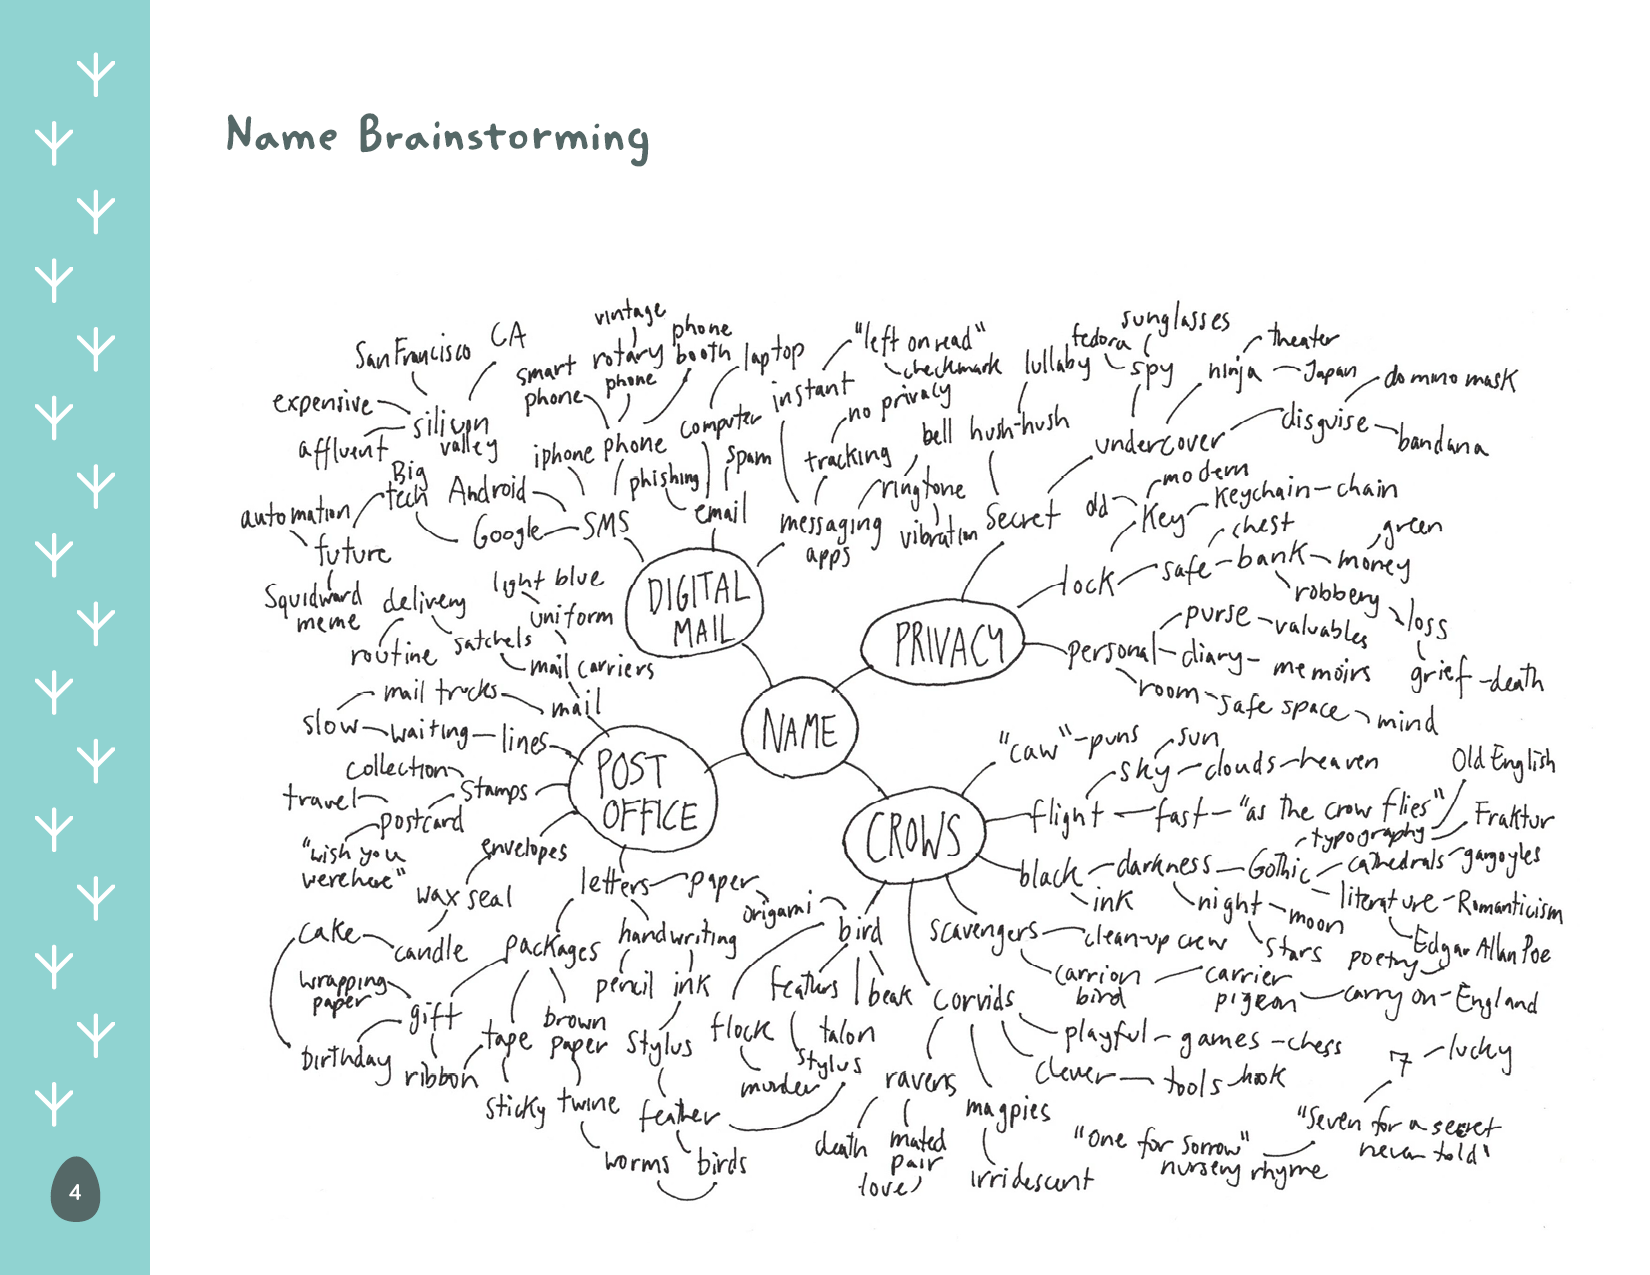 Name Brainstorming
NAME
DIGITAL
MAIL
SMS
Google
Android
iphone
phone
smart
phone
rotary
phone
vintage
phone
booth
Big
tech
silicon
valley
San Francisco
CA
expensive
affluent
automation
future
Squidward
meme
email
phishing
spam
computer
laptop
messaging
apps
instant
"left on read"
checkmark
tracking
no privacy
ringtone
bell
vibration
PRIVACY
Secret
hush-hush
lullaby
undercover
spy
fedora
sunglasses
ninja
theater
Japan
disguise
domino mask
bandana
lock
Key
old
modern
Keychain-chain
safe
chest
bank
money
green
robbery
loss
grief
death
personal
purse
valuables
diary
memoirs
room
safe space
mind
POST
OFFICE
mail
mail carriers
uniform
light blue
satchels
delivery
routine
mail trucks
slow
waiting
lines
stamps
collection
postcard
travel
"wish you
were here"
envelopes
wax seal
candle
cake
birthday
letters
paper
origami
handwriting
pencil
ink
stylus
feather
birds
worms
packages
gift
wrapping
paper
ribbon
tape
sticky
brown
paper
twine
CROWS
"caw"-puns
flight
sky
sun
clouds
heaven
fast
"as the crow flies"
black
ink
darkness
night
moon
stars
Gothic
typography
Old English
Fraktur
cathedrals
gargoyles
literature
Romanticism
Edgar Allan Poe
poetry
scavengers
clean-up crew
carrion
bird
carrier
pigeon
carry on
England
bird
flock
murder
feathers
stylus
talon
beak
corvids
playful
games
chess
clever
tools
hook
ravens
death
mated
pair
love
magpies
irridescent
"One for sorrow"
nursery rhyme
"Seven for a secret
never told"
7
lucky
4